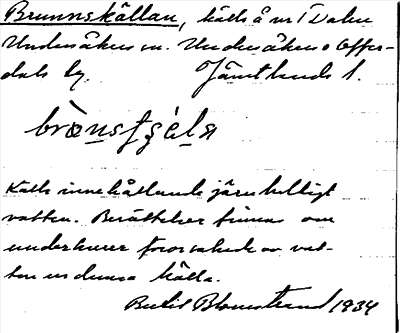 Brunnskällan, källa å nr 1 Dalen
Undersåkers sn. Undersåkers o Offer-
dals tg. Jämtlands l.
Källa innehållande järnhaltigt
vatten. Berättelser finnas om
underkurer förorsakade av vat-
ten ur denna källa.
Bertil Blomstrand 1934